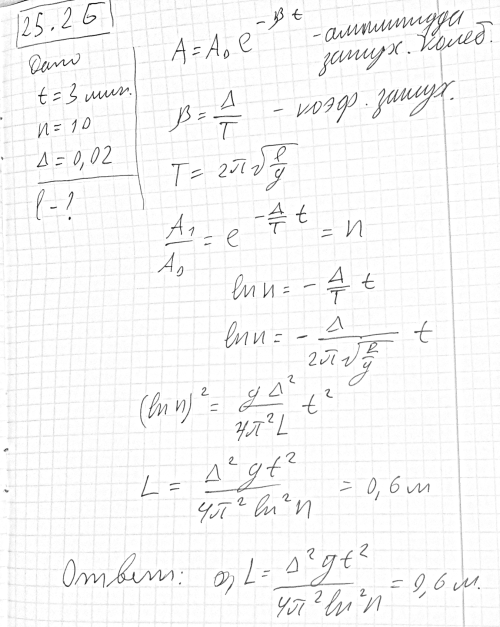 25.2Б
Дано
t = 3 мин.
n = 10
Δ = 0,02
l - ?
A = A₀ e^(-βt) - амплитуда
затух. колеб.
β = Δ/T - коэф. затух.
T = 2π√(l/g)
A₁/A₀ = e^(-Δ/T t) = n
ln n = - Δ/T t
ln n = - Δ/(2π√(l/g)) t
(ln n)² = gΔ²/(4π²L) t²
L = Δ²gt²/(4π² ln²n) = 0,6 м
Ответ: L = Δ²gt²/(4π² ln²n) = 0,6 м.